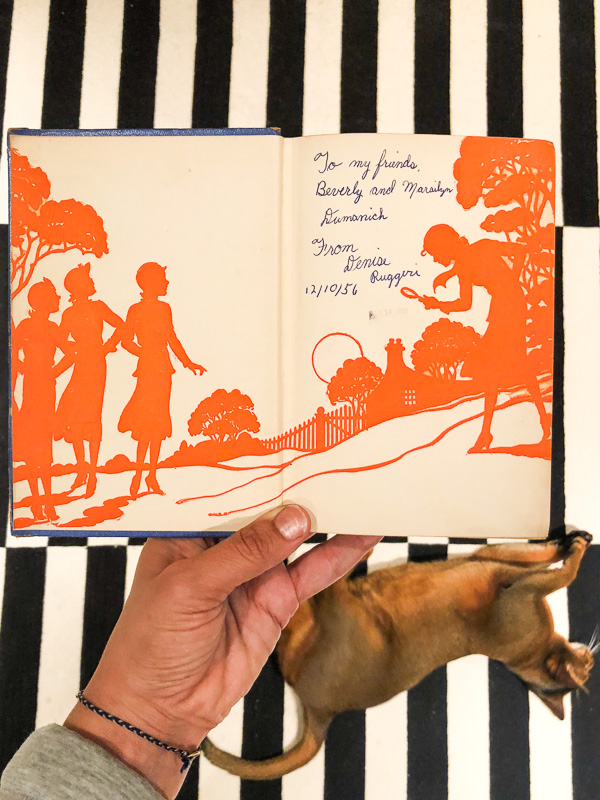 To my friends,
Beverly and Marsilyn
Dumanich
From
Denise
Ruggeri
12/10/56